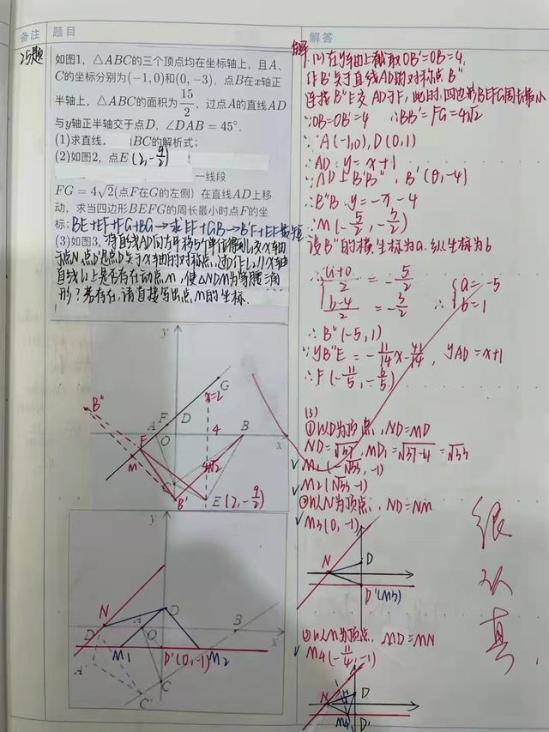 备注
题目
25题
如图1，△ABC的三个顶点均在坐标轴上，且A、
C的坐标分别为(-1,0)和(0,-3)，点B在x轴正
半轴上，△ABC的面积为15/2，过点A的直线AD
与y轴正半轴交于点D，∠DAB=45°.
(1)求直线 BC的解析式；
(2)如图2，点E(2,-9/2)
一线段
FG=4√2(点F在G的左侧)在直线AD上移
动，求当四边形BEFG的周长最小时点F的坐
标；BE+EF+FG+BG→求EF+GB→B'F+EF最小值
(3)如图3，将直线AD向左平移5个单位得到l₁交x轴
于点N,点D'是点D关于x轴的对称点,过D'作l₂∥x轴
直线l₂上是否存在动点M，使△NDM为等腰三角
形？若存在,请直接写出点M的坐标.
y
G
x=2
B''
A F D
O
4
B
x
F
M
4√2
B'
E(2,-9/2)
y
x
N
D
A
O
B
D
M₁
D'(0,-1)
M₂
A'
C
C'
解答
解.(2)在y轴上截取OB'=OB=4,
作B'关于直线AD的对称点B''
连接B''E交AD于F,此时,四边形BEFG周长最小
∵OB=OB'=4 ∴BB'=FG=4√2
∵A(-1,0),D(0,1)
∴AD:y=x+1
∵AD⊥B'B'',B'(0,-4)
∴B''B':y=-x-4
∴M(-5/2,-3/2)
设B''的横坐标为a.纵坐标为b
∴{(a+0)/2=-5/2 (b-4)/2=-3/2 ∴{a=-5 b=1
∴B''(-5,1)
∵yB''E=-11/14x-41/14, yAD=x+1
∴F(-11/5,-6/5)
(3)
①以D为顶点,ND=MD
ND=√37,MD₁=√37-4=√33
M₁(-√33,-1)
M₂(√33,-1)
②以N为顶点,ND=NM
M₃(0,-1)
N
D
D'(M₃)
③以M为顶点,MD=MN
M₄(-11/4,-1)
N
H
D
M₄
D'
很
认
真